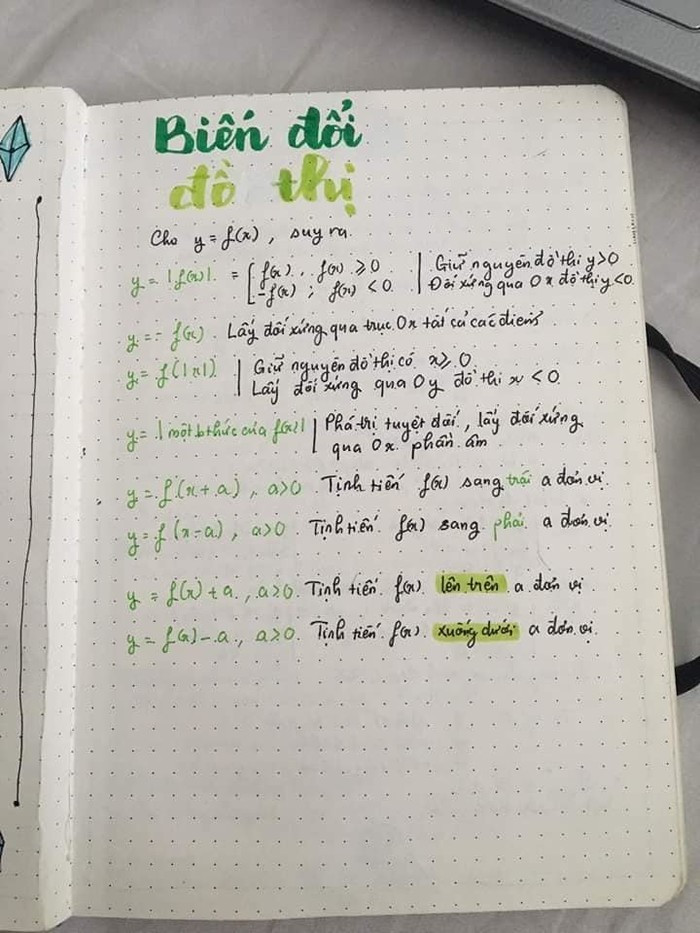 Biến đổi
đồ thị
Cho y = f(x), suy ra
y = |f(x)| = [ f(x), f(x) ⩾ 0 | Giữ nguyên đồ thị y>0
[ -f(x); f(x) < 0 | Đối xứng qua Ox đồ thị y<0
y = - f(x). Lấy đối xứng qua trục Ox tất cả các điểm
y = f(|x|) | Giữ nguyên đồ thị có x ⩾ 0
Lấy đối xứng qua Oy đồ thị x < 0
y = | một bthức của f(x) | | Phá trị tuyệt đối, lấy đối xứng
qua Ox phần âm
y = f(x + a), a>0 Tịnh tiến f(x) sang trái a đơn vị
y = f(x - a), a>0 Tịnh tiến f(x) sang phải a đơn vị
y = f(x) + a, a>0. Tịnh tiến f(x) lên trên a đơn vị
y = f(x) - a, a>0. Tịnh tiến f(x) xuống dưới a đơn vị